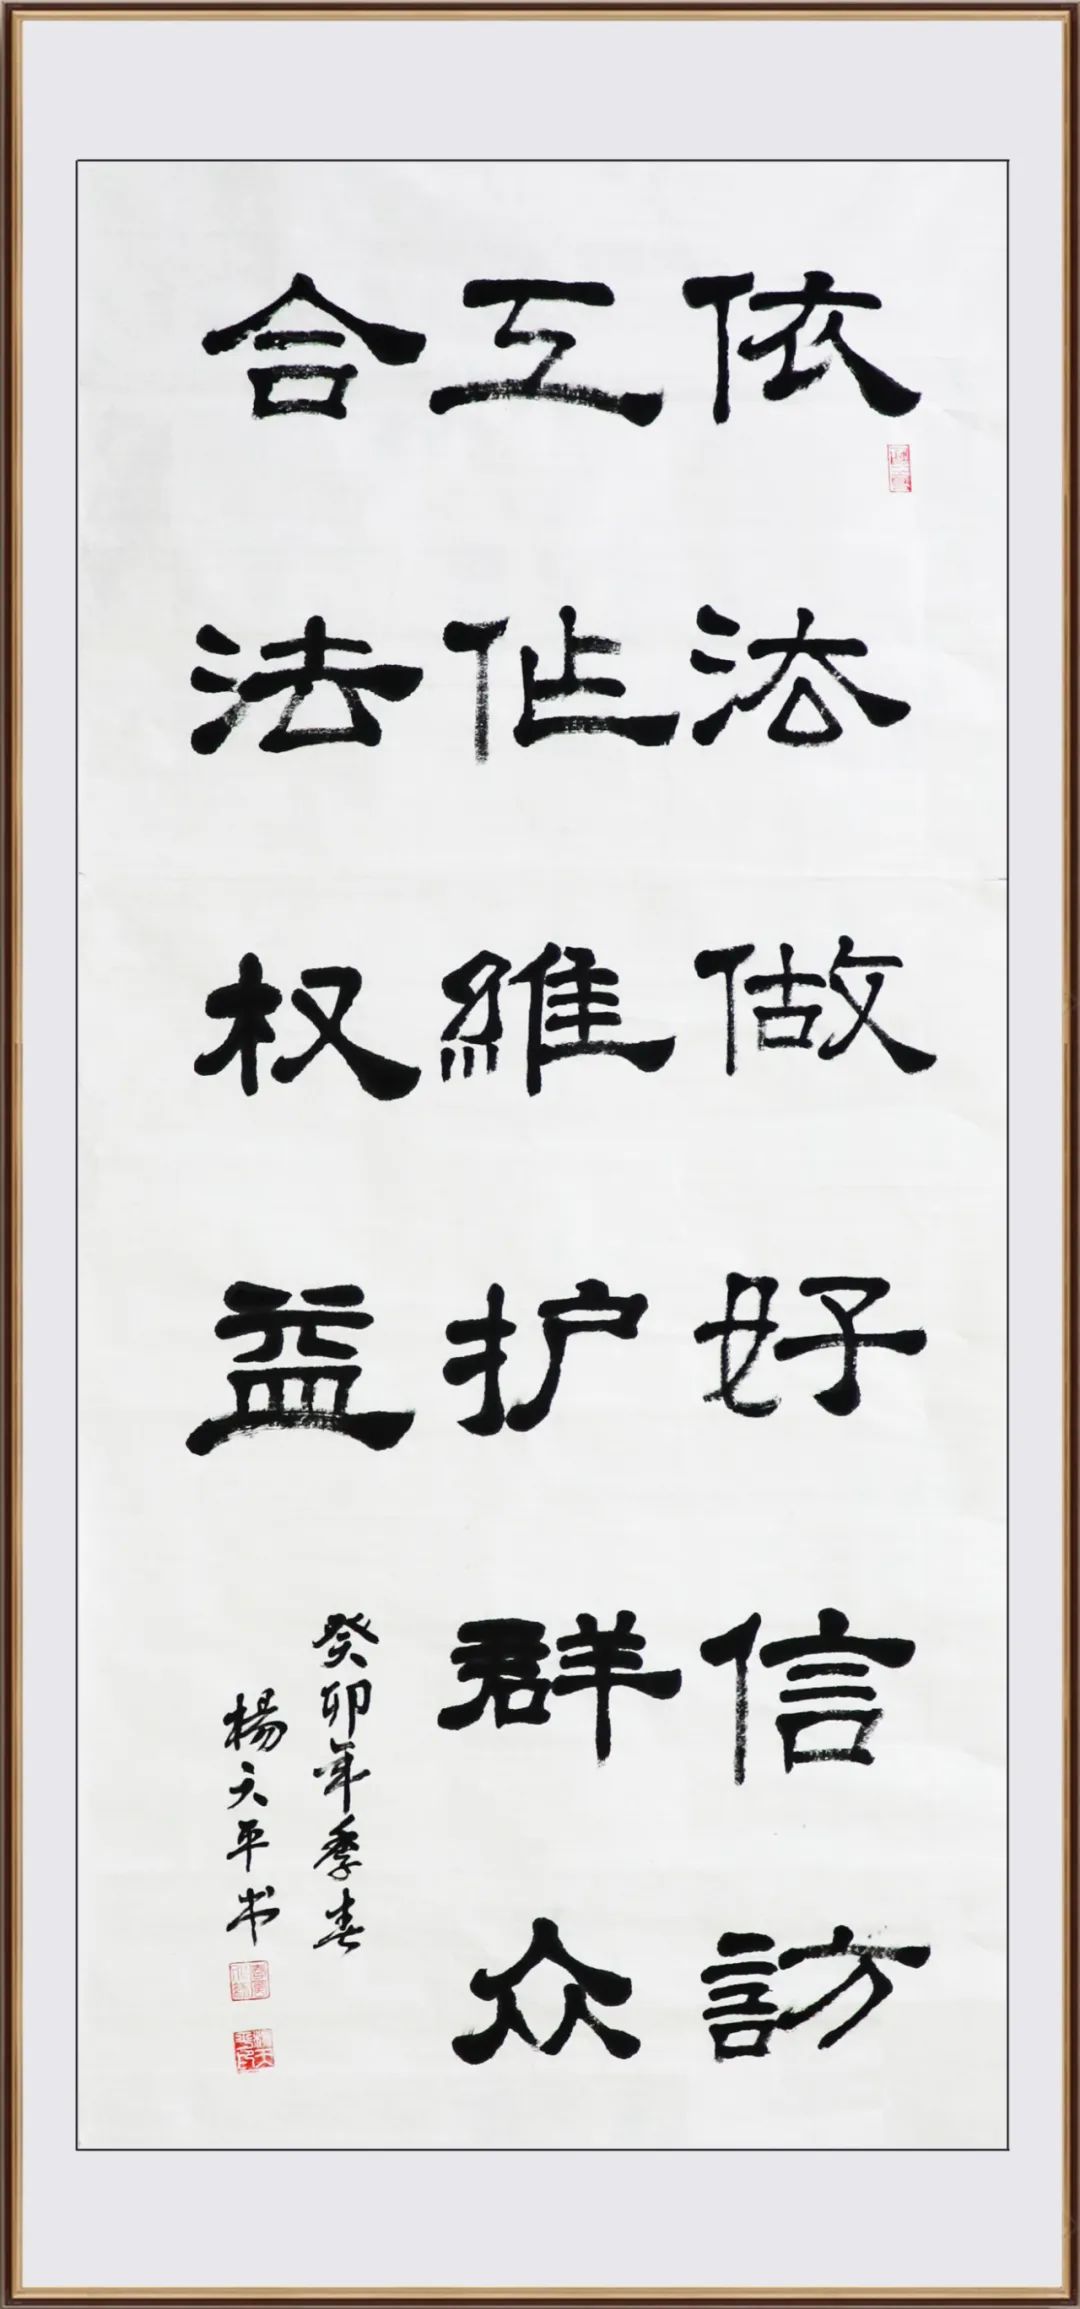 依法做好信訪
工作維护群众
合法权益
癸卯年季春
楊天平书